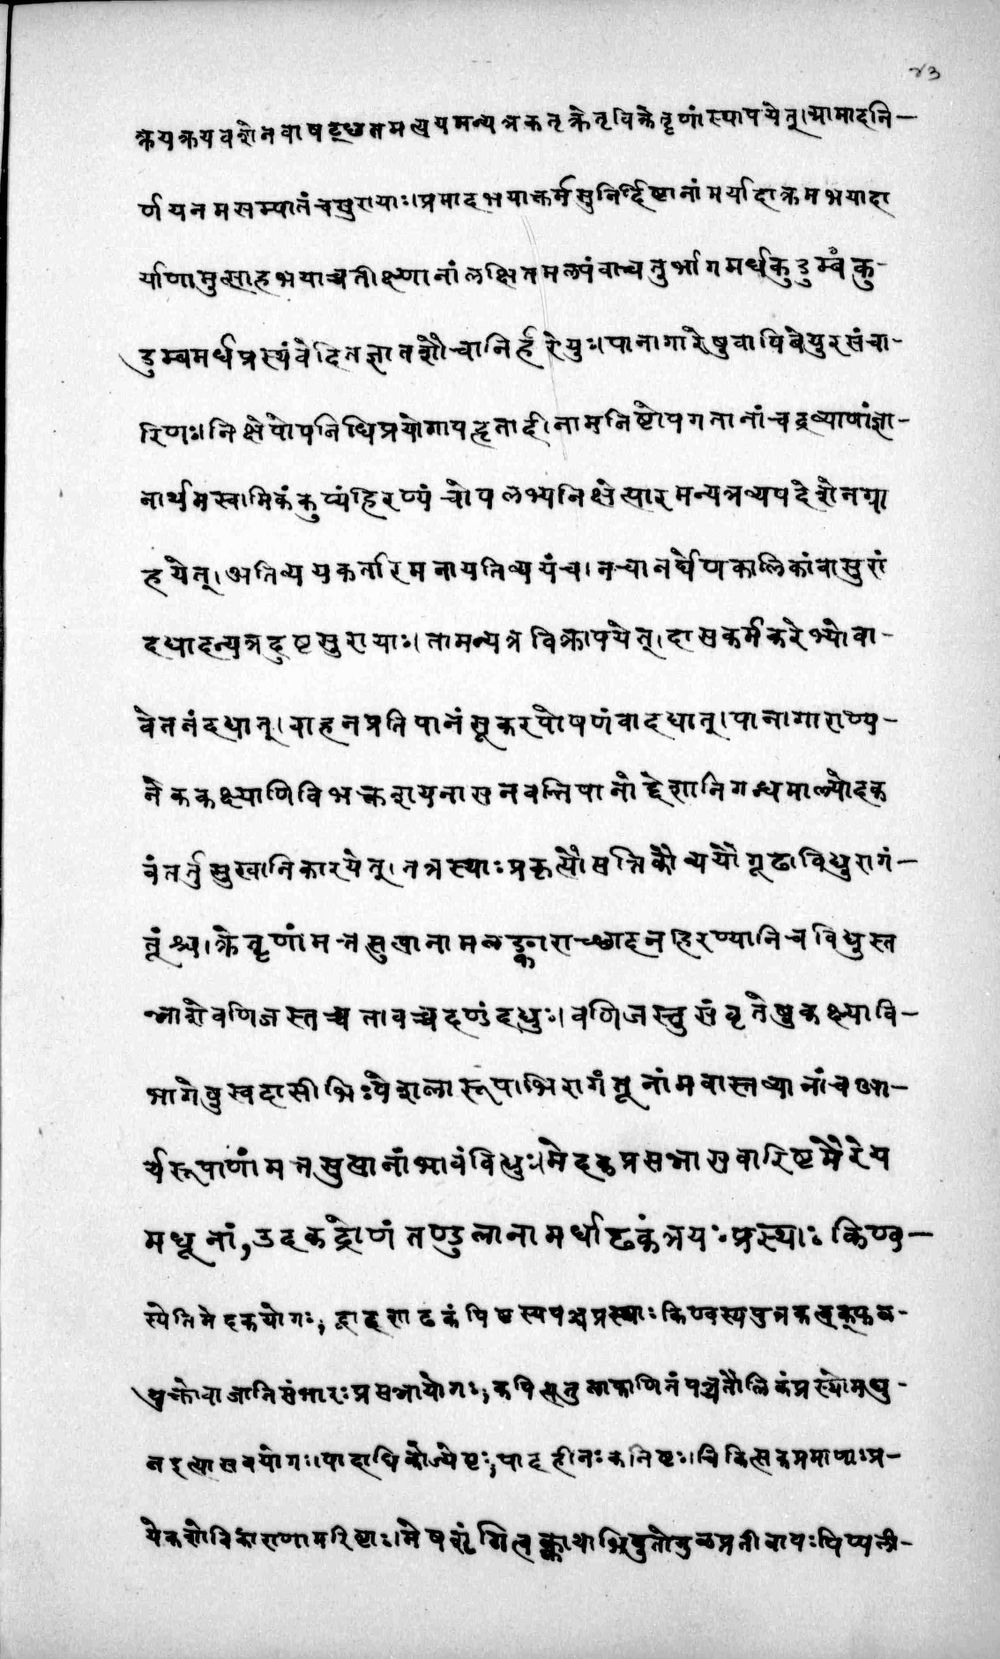 ४३
क्रयक्रयवशेनवाषट्छतमत्ययमन्यत्रकतृक्रेतृविक्रेतृणांस्थापयेत्।ग्रामादनि-
र्णयनमसम्पातंचसुरायाः।प्रमादभयात्कर्मसुनिर्दिष्टानांमर्यादाक्रमभयादा
र्याणामुत्साहभयाच्चतीक्ष्णानांलक्षितमल्पंवाचतुर्भागमर्धकुडुम्बंकु-
डुम्बमर्धप्रस्थंवेदितज्ञातशौचानिर्हरेयुः।पानागारेषुवापिबेयुरसंचा-
रिणः।निक्षेपोपनिधिप्रयोगापहृतादीनामनिष्टोपगतानांचद्रव्याणांज्ञा-
नार्थमस्वामिकंकुप्यंहिरण्यंचोपलभ्यनिक्षेप्तारमन्यत्रव्यपदेशेनग्रा
हयेत्।अतिव्ययकर्तारमनायतिव्ययंच।नचानर्घेणकालिकांवासुरां
दद्यादन्यत्रदुष्टसुरायाः।तामन्यत्रविक्रापयेत्।दासकर्मकरेभ्योवा-
वेतनंदद्यात्।वाहनप्रतिपानंसूकरपोषणंवादद्यात्।पानागाराण्य-
नेककक्ष्याणिविभक्तशयनासनवन्तिपानोद्देशानिगन्धमाल्योदक
वंतर्तुसुखानिकारयेत्।तत्रस्थाःप्रकृत्यौत्पत्तिकौव्ययौगूढाविद्युरागं-
तूंश्च।क्रेतृणांमत्तसुप्तानामलङ्काराच्छादनहिरण्यानिचविद्युस्त
न्नाशेवणिजस्तच्चतावच्चदण्डंदद्युः।वणिजस्तुसंवृतेषुकक्ष्यावि-
भागेषुस्वदासीभिःपेशलारूपाभिरागंतूनांमवास्तव्यानांचआ-
र्यरूपाणांमत्तसुप्तानांभावंविद्युः।मेदकप्रसन्नासवारिष्टमैरेय
मधूनां,उदकद्रोणंतण्डुलानामर्धाढकंत्रयःप्रस्थाःकिण्व-
स्येतिमेदकयोगः,द्वादशाढकंपिष्टस्यपञ्चप्रस्थाःकिण्वस्यपुत्रकत्वक्फल-
युक्तोवाजातिसंभारःप्रसन्नायोगः,कपित्थतुलाफाणितंपञ्चतौलिकंप्रस्थोमधु-
नइत्यासवयोगः।पादाधिकोज्येष्टः,पादहीनःकनिष्टः।चिकित्सकप्रमाणाःप्र-
येकशोविकाराणामरिष्टाः।मेषशृंगित्वक्क्वाथाभिषुतोगुळप्रतीवापःपिप्पली-